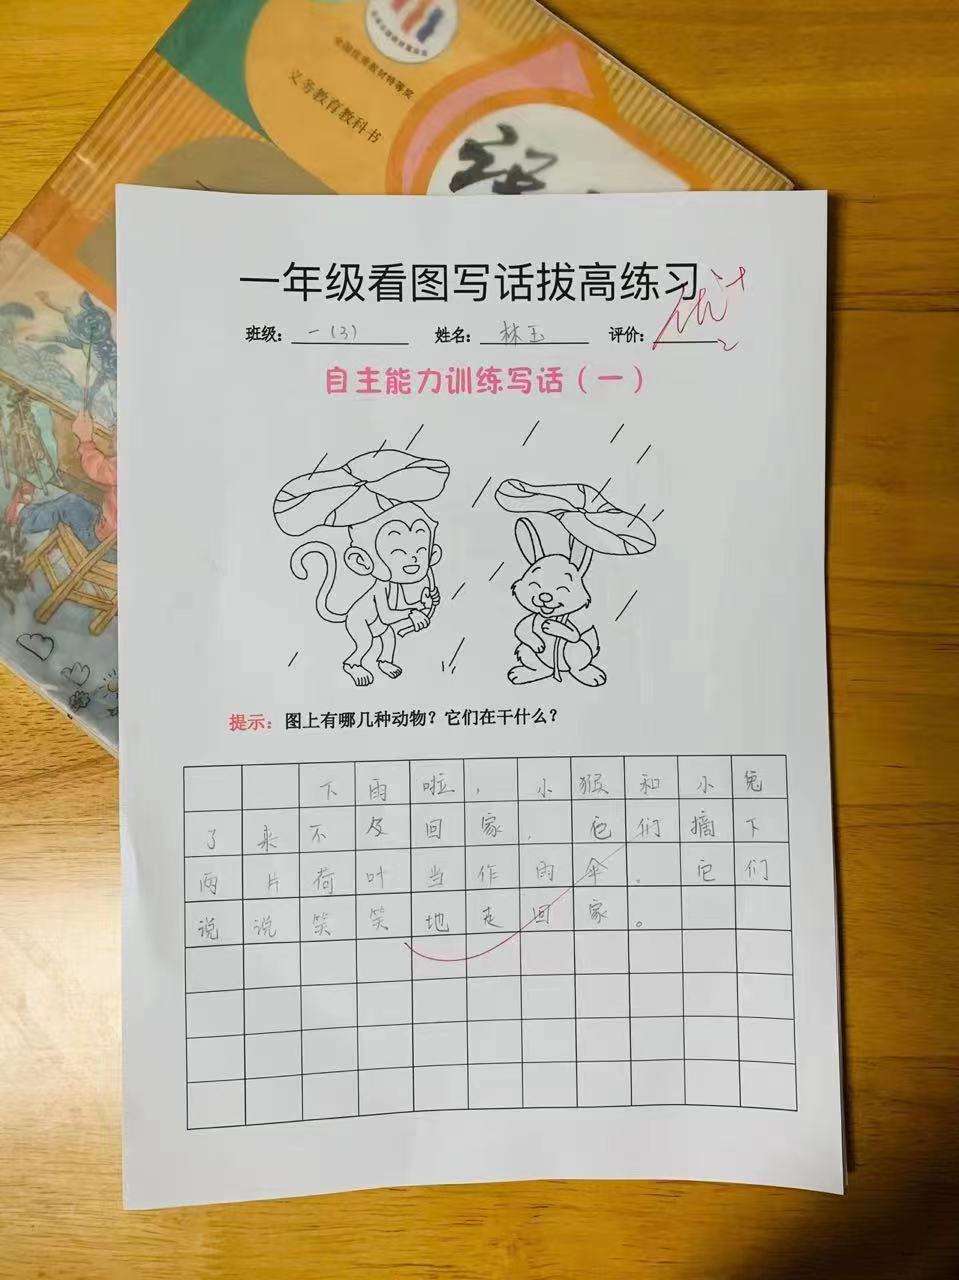 全国优秀教材特等奖
义务教育教科书
一年级看图写话拔高练习
班级: 一(3) 姓名: 林玉 评价: 优+
2
自主能力训练写话（一）
提示：图上有哪几种动物？它们在干什么？
下雨啦，小猴和小兔
了来不及回家，它们摘下
两片荷叶当作雨伞。它们
说说笑笑地走回家。